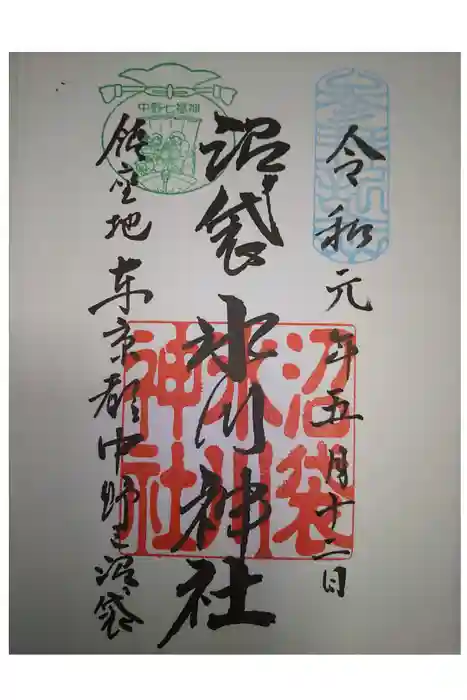 奉拝
令和元年五月十二日
沼袋氷川神社
沼袋氷川神社
中野七福神
鎮座地東京都中野区沼袋